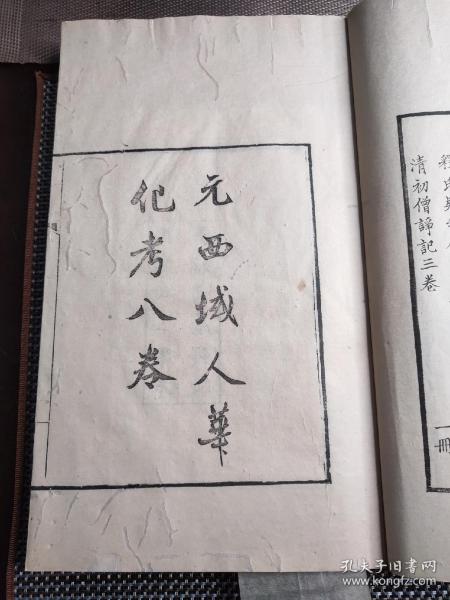 元西域人華
化考八卷
清初僧諍記三卷
一冊
孔夫子旧书网
www.kongfz.com